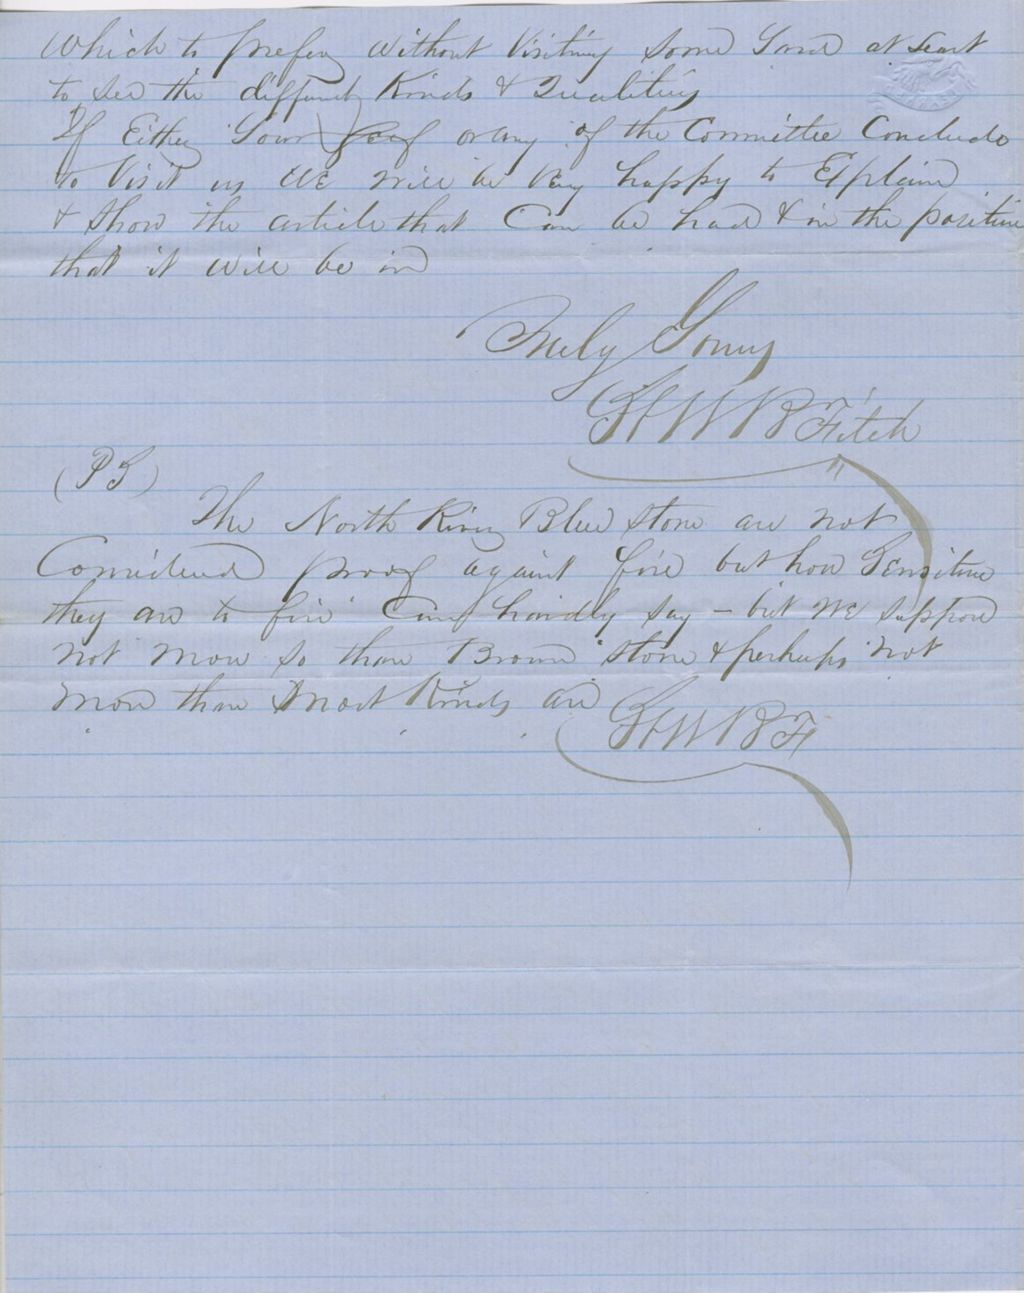 Which to prefer without Visiting Some Yard at least
to see the different Kinds & Qualities
If Either Your self or any of the Committee Conclude
to Visit us We will be Very happy to Explain
& Show the article that Can be had & in the position
that it will be in
Truly Yours
WB Fitch
(PS)
The North River Blue Stone are not
Considered proof against fire but how Sensitive
they are to fire Can hardly say - but We suppose
not more so than Brown Stone & perhaps not
more than Most Kinds are
WBF